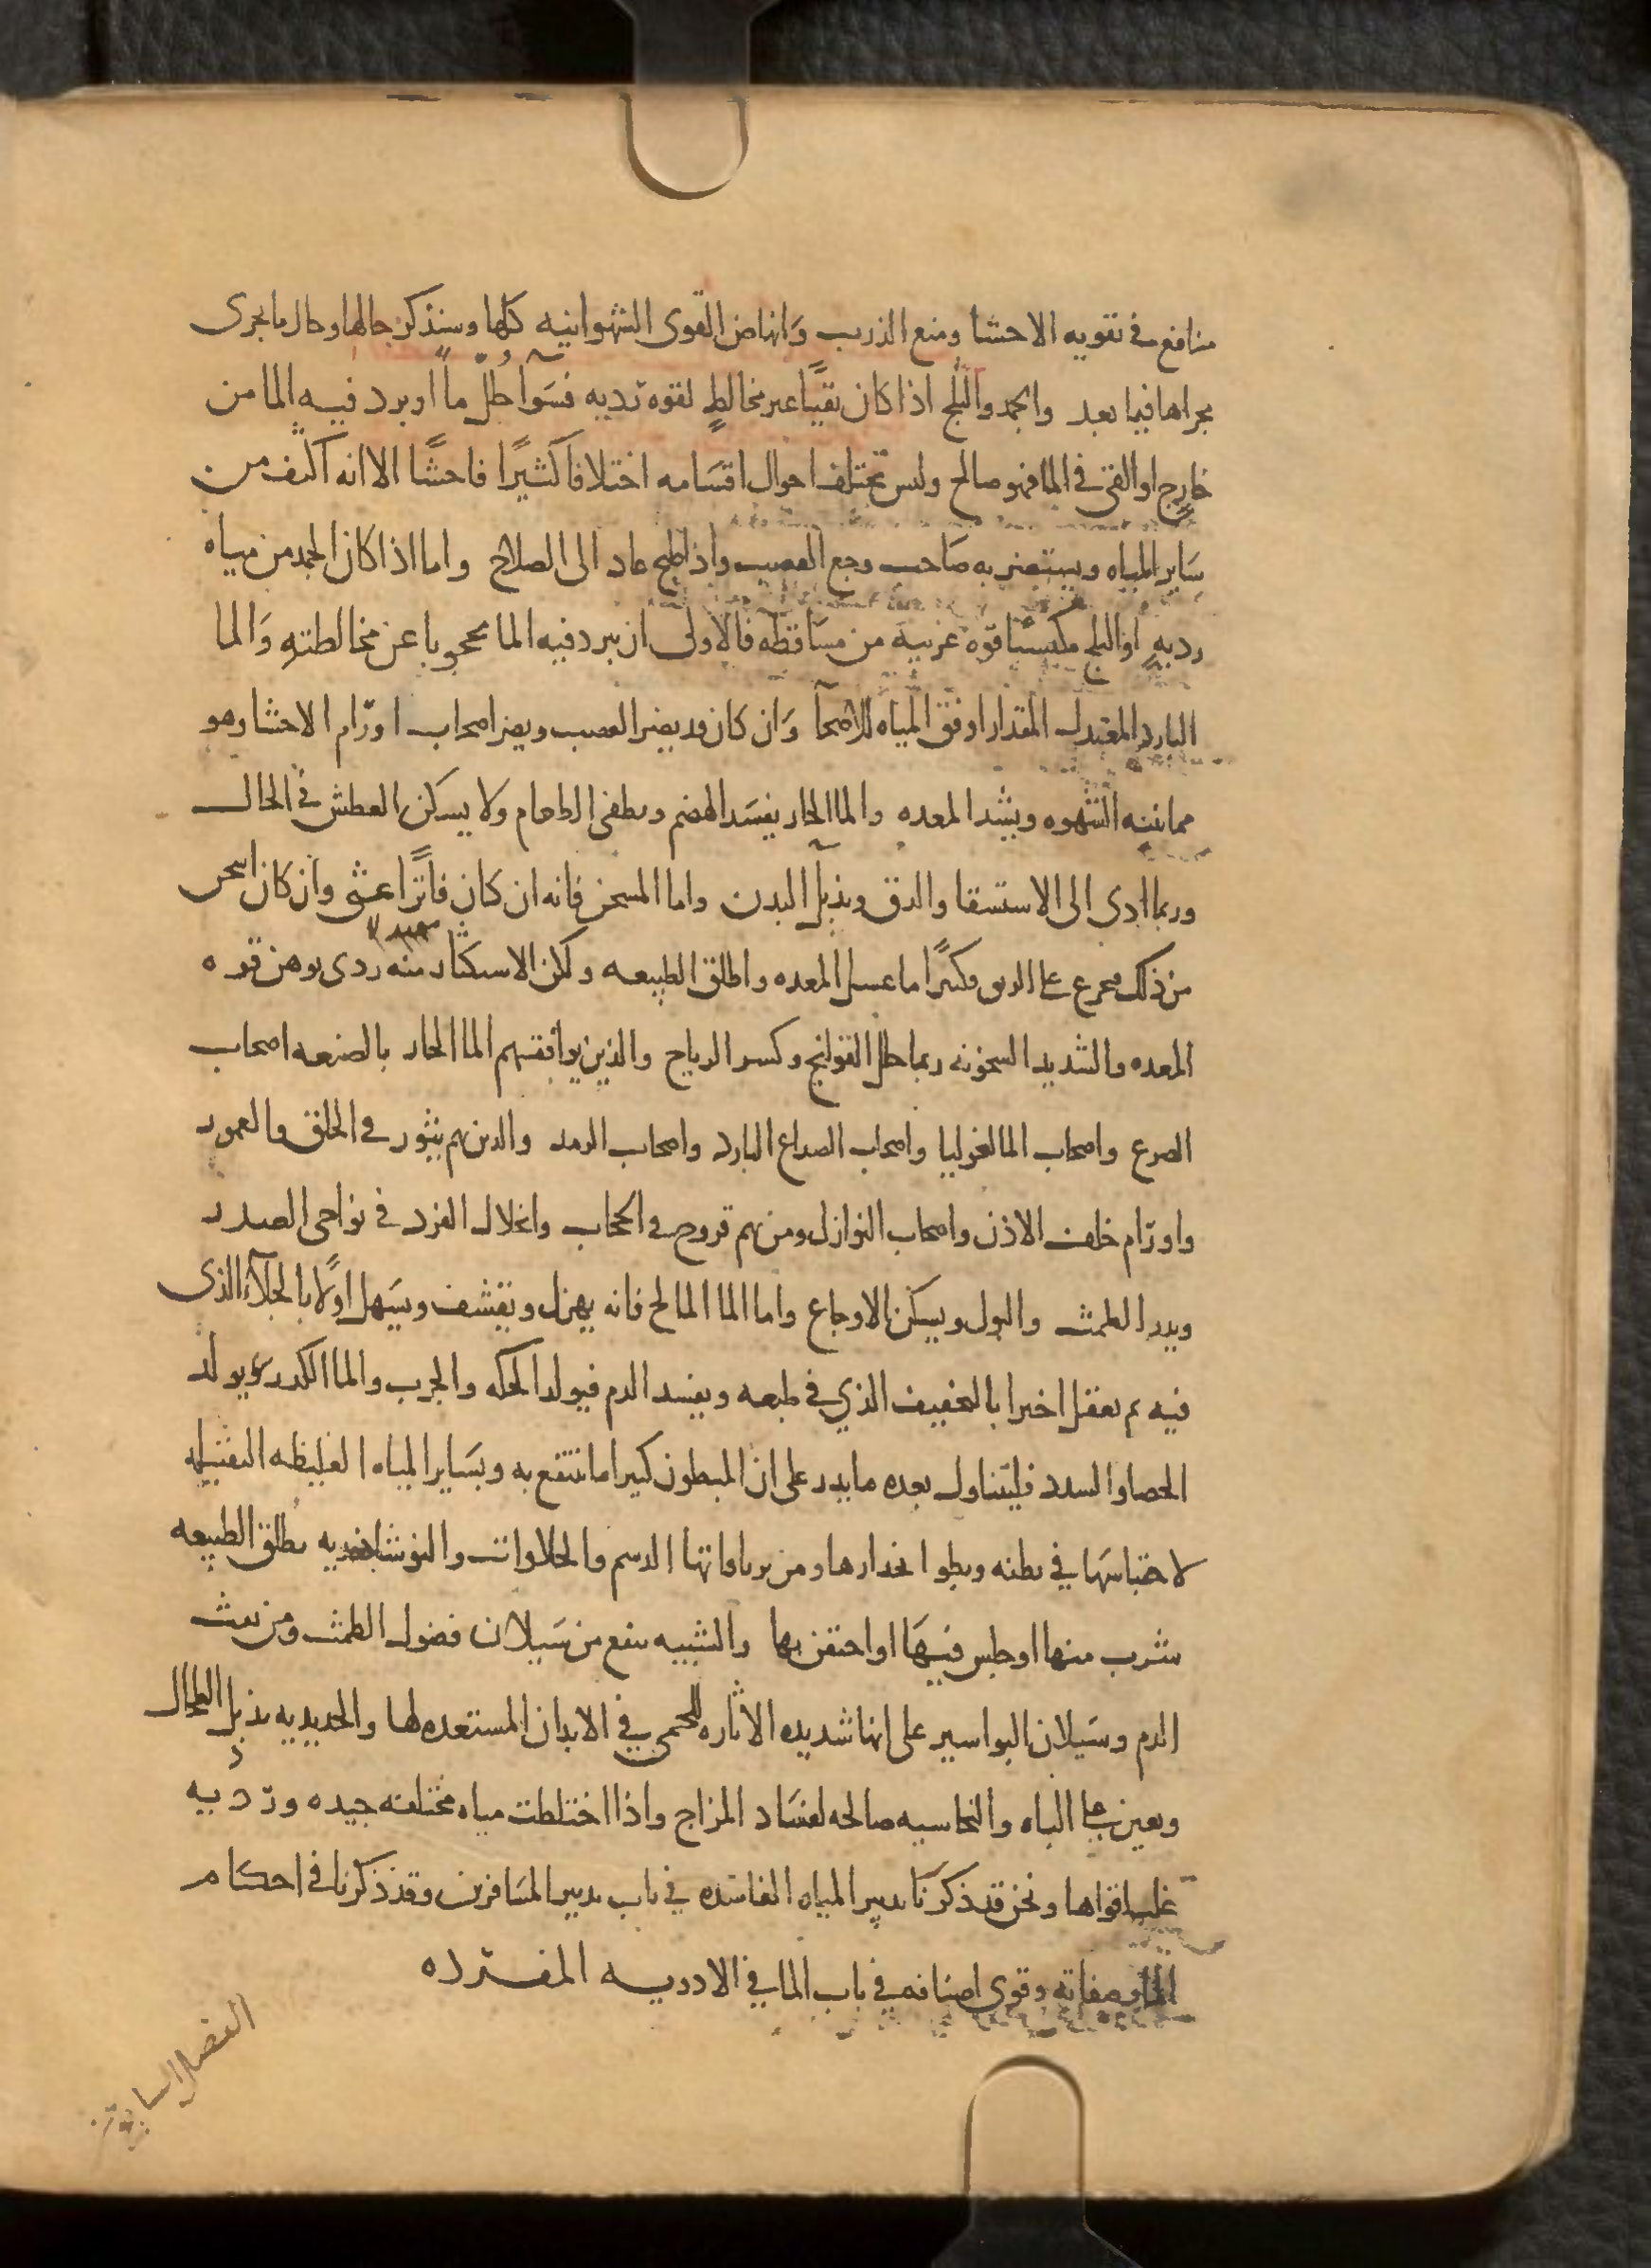 منافع في تقويه الاحشا ومنع الذرب وَانهاض القوى الشهوانيه كلها وسنذكر حالها وحال ما يجرى
مجراها فيما بعد والجمد والثلج اذا كان نقيًا غير مخالطٍ لقوه رديه فسَوآ حُلّل مآً او برد فيه الما من
خارج او القى في الما فهو صالح وليس تختلف احوال اقسَامه اختلافا كثيرًا فاحشًا الا انه اكثف من
سَاير المياه ويستضر به صَاحب وجع العصب واذا طبخ عاد الى الصلاح واما اذا كان الجمد من مياه
رديهٍ او الثلج مكتسبًا قوه غريبه من مسَاقطه فالاولى ان يبرد فيه الما محجوبا عن مخالطته وَالما
البارد المعتدل المقدار اوفق المياه للاصحآ وَان كان قد يضر العصب ويضر اصحاب اورَام الاحشا وهو
مما ينبه الشهوه ويشد المعده والما الحار يفسَد الهضم ويطفى الطعام ولا يسكن العطش في الحال
وربما ادى الى الاستسقا والدق ويذبل البدن واما المسخن فانه ان كان فاترًا غثى وان كان اسخن
من ذلك فتجرع على الريق فكثيرًا ما غسل المعده واطلق الطبيعه ولكن الاستكثار منه ردى يوهن قوه
المعده والشديد السخونه ربما حلل القولنج وكسر الرياح والذين يوافقهم الما الحار بالصنعه اصحاب
الصرع واصحاب المالنخوليا واصحاب الصداع البارد واصحاب الرمد والذين بهم بثور في الحلق والعمور
واورَام خلف الاذن واصحاب النوازل ومن بهم قروح في الحجاب وانحلال الفرد في نواحى الصدر
ويدر الطمث والبول ويسكن الاوجاع واما الما المالح فانه يهزل ويقشف ويسَهل اولًا بالجلآء الذى
فيه ثم يعقل اخيرا بالتجفيف الذي في طبعه ويفسد الدم فيولد الحكه والجرب والما الكدر يولد
الحصا والسدد فليتناول بعده ما يدر على ان المبطون كثيرا ما ينتفع به وبسَاير المياه الغليظه الثقيله
لاحتباسَها في بطنه وبطو انحدارها ومن ترياقاتها الدسم والحلاوات والنوشادريه تطلق الطبيعه
شرب منها او جلس فيهَا او احتقن بها والشبيه تنفع من سَيلان فضول الطمث ومن نفث
الدم وسَيلان البواسير على انها شديده الاثاره للحمى في الابدان المستعده لها والحديديه تذبل الطحال
وتعين على الباه والنحاسيه صالحه لفسَاد المزاج واذا اختلطت مياه مختلفه جيده ورَديه
غلب اقواها ونحن قد ذكرنا تدبير المياه الفاسده في باب تدبير المسَافرين وقد ذكرنا في احكام
الما وصفاته وقوى اصنافه في باب الما في الادويه المفرده
الفصل السابع